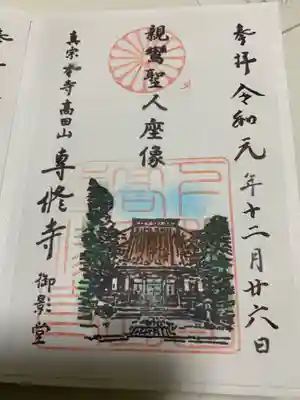 参拝 令和元年十二月廿六日
親鸞聖人座像
真宗本寺高田山 専修寺 御影堂